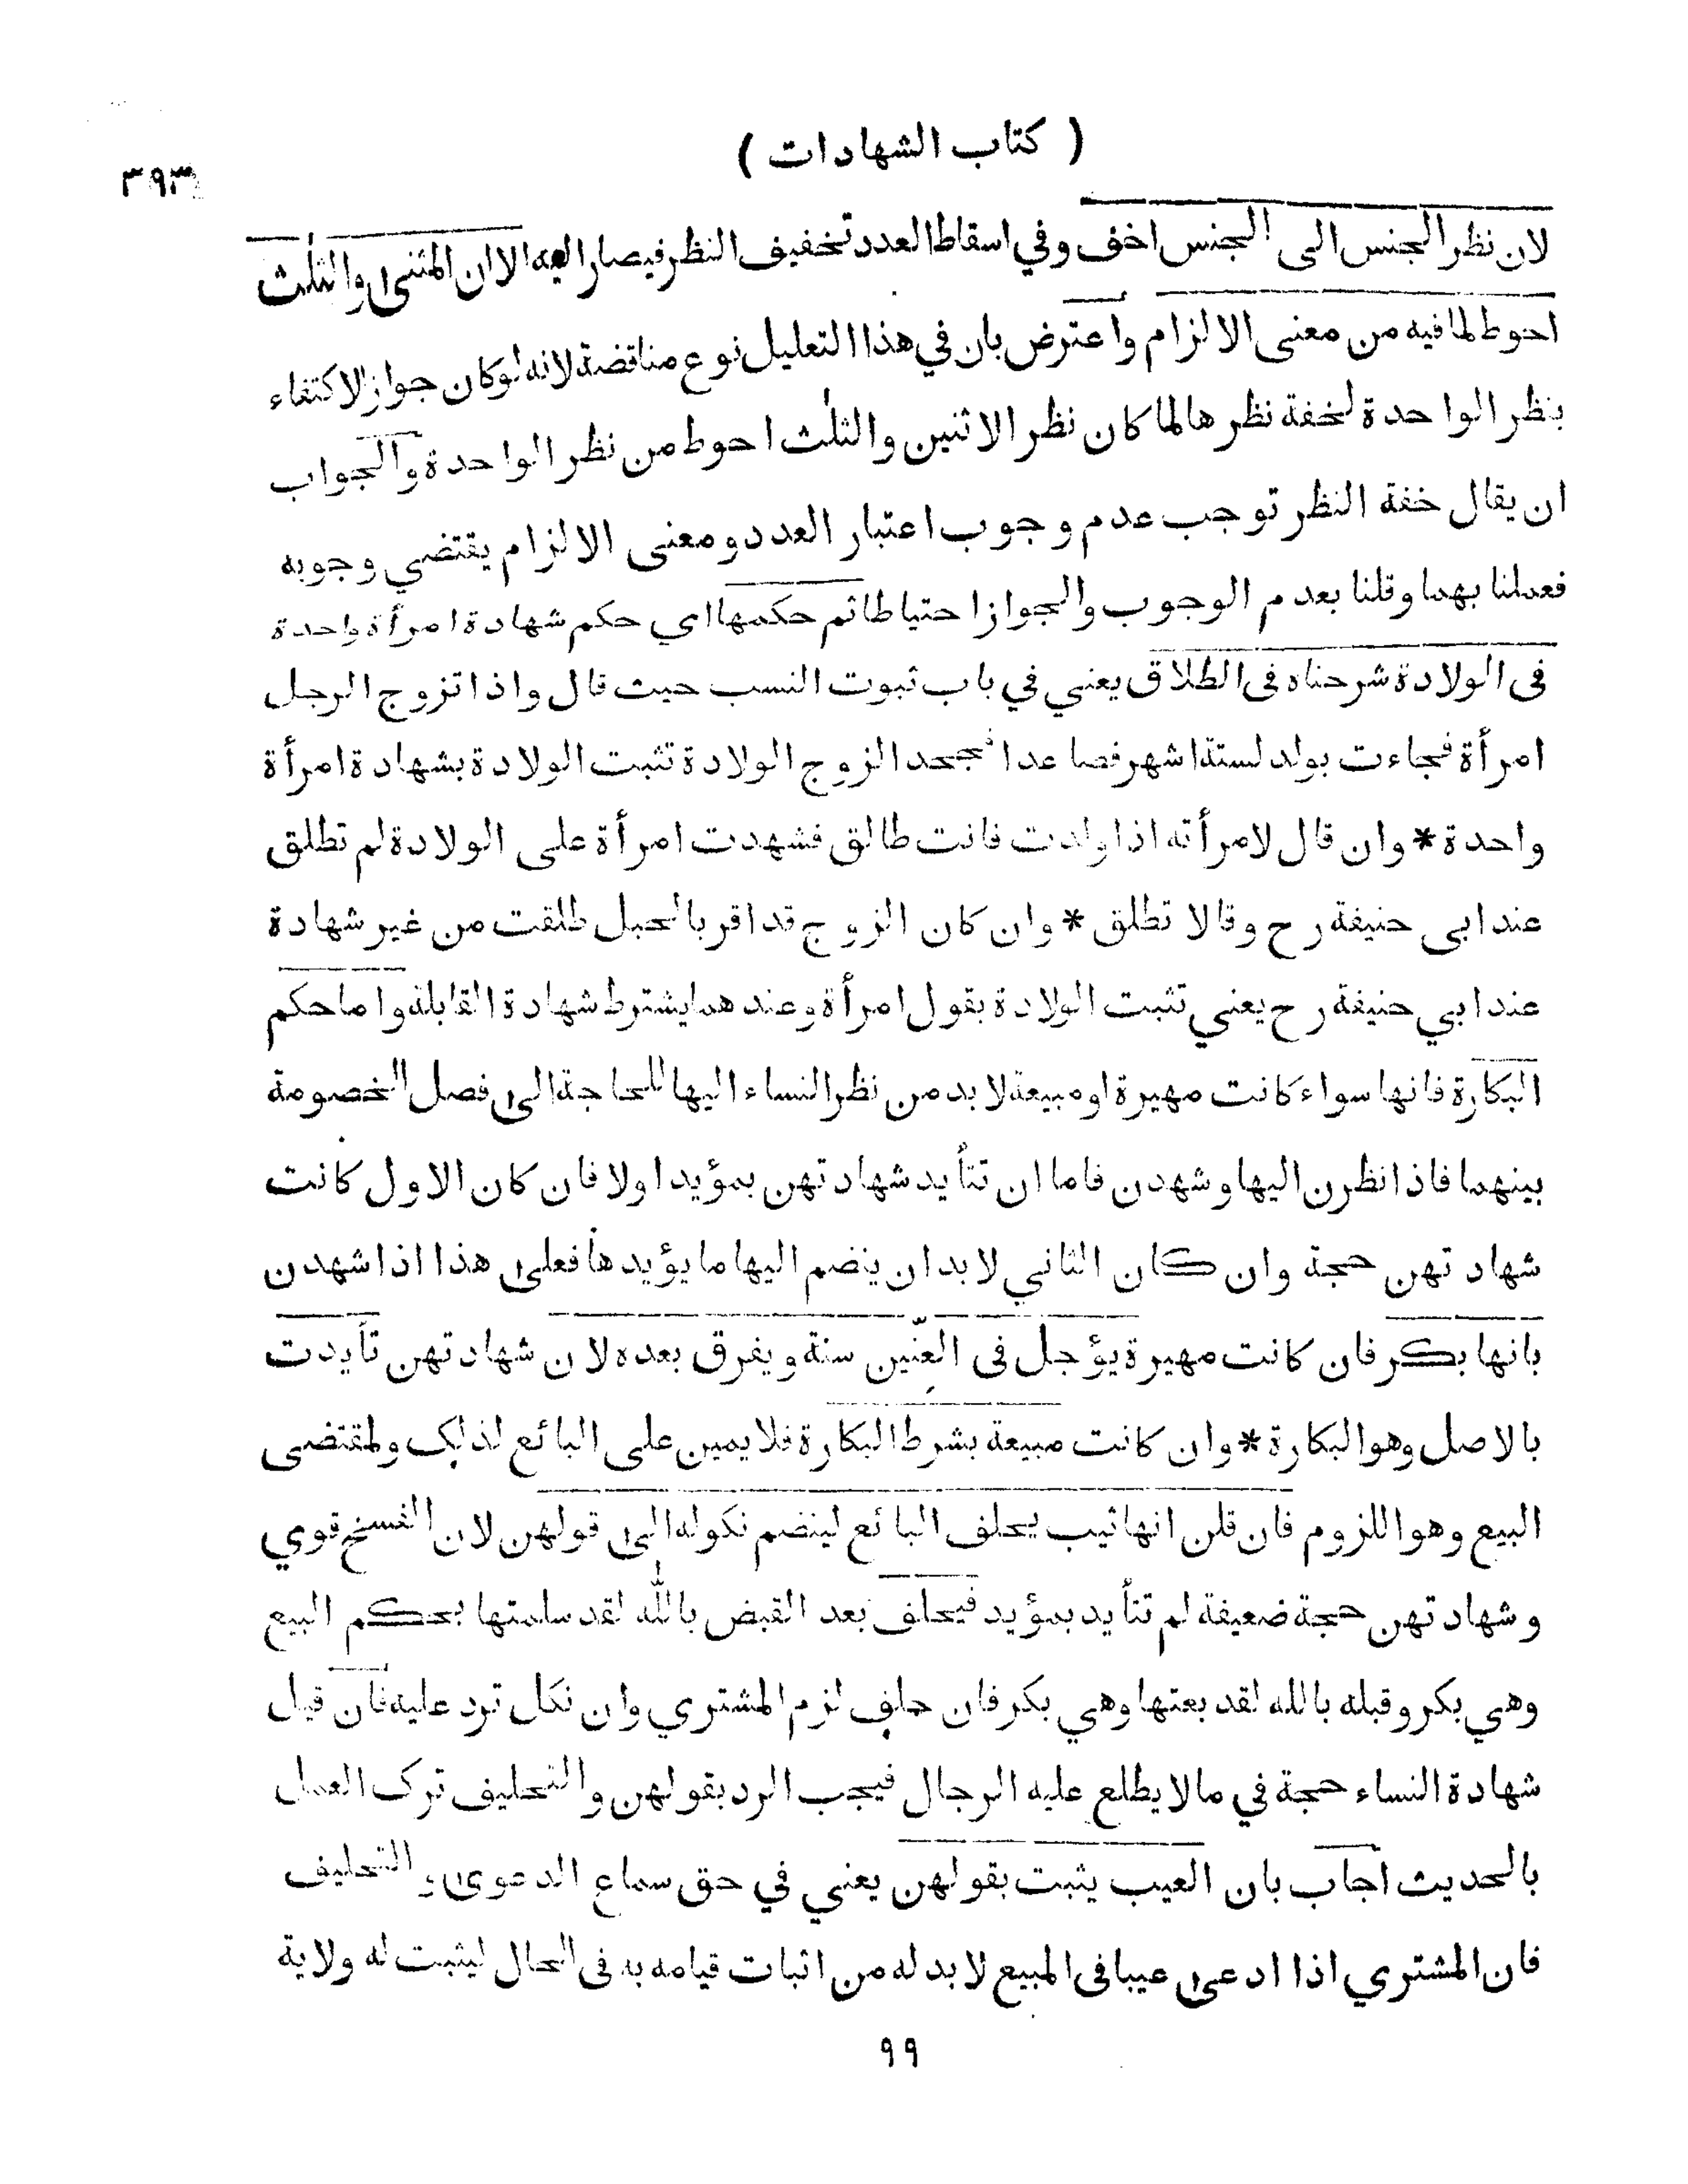 ( كتاب الشهادات )
٣٩٣
لان نظر الجنس الى الجنس اخف وفي اسقاط العدد تخفيف النظر فيصار اليه الا ان المثنى والثلث
احوط لما فيه من معنى الالزام واعترض بان في هذا التعليل نوع مناقضة لانه لوكان جواز الاكتفاء
بنظر الواحدة لخفة نظرها لما كان نظر الاثنين والثلث احوط من نظر الواحدة والجواب
ان يقال خفة النظر توجب عدم وجوب اعتبار العدد ومعنى الالزام يقتضي وجوبه
فعملنا بهما وقلنا بعدم الوجوب والجواز احتياطا ثم حكمها اي حكم شهادة امرأة واحدة
فى الولادة شرحناه فى الطلاق يعني في باب ثبوت النسب حيث قال واذا تزوج الرجل
امرأة فجاءت بولد لستة اشهر فصاعدا فجحد الزوج الولادة تثبت الولادة بشهادة امرأة
واحدة * وان قال لامرأته اذا ولدت فانت طالق فشهدت امرأة على الولادة لم تطلق
عند ابى حنيفة رح وقالا تطلق * وان كان الزوج قد اقر بالحبل طلقت من غير شهادة
عند ابي حنيفة رح يعني تثبت الولادة بقول امرأة وعندهما يشترط شهادة القابلة واما حكم
البكارة فانها سواء كانت مهيرة او مبيعة لابد من نظر النساء اليها للحاجة الى فصل الخصومة
بينهما فاذا نظرن اليها وشهدن فاما ان تتأيد شهادتهن بمؤيد اولا فان كان الاول كانت
شهادتهن حجة وان كان الثاني لابد ان ينضم اليها ما يؤيدها فعلى هذا اذا شهدن
بانها بكر فان كانت مهيرة يؤجل فى العنّين سنة ويفرق بعده لان شهادتهن تأيدت
بالاصل وهو البكارة * وان كانت مبيعة بشرط البكارة فلا يمين على البائع لذلك ولمقتضى
البيع وهو اللزوم فان قلن انها ثيب يحلف البائع لينضم نكوله الى قولهن لان الفسخ قوي
وشهادتهن حجة ضعيفة لم تتأيد بمؤيد فيحلف بعد القبض بالله لقد سلمتها بحكم البيع
وهي بكر وقبله بالله لقد بعتها وهي بكر فان حلف لزم المشتري وان نكل ترد عليه فان قيل
شهادة النساء حجة في مالا يطلع عليه الرجال فيجب الرد بقولهن والتحليف ترك العمل
بالحديث اجاب بان العيب يثبت بقولهن يعني في حق سماع الدعوى والتحليف
فان المشتري اذا ادعى عيبا فى المبيع لابد له من اثبات قيامه به فى الحال ليثبت له ولاية
٩٩